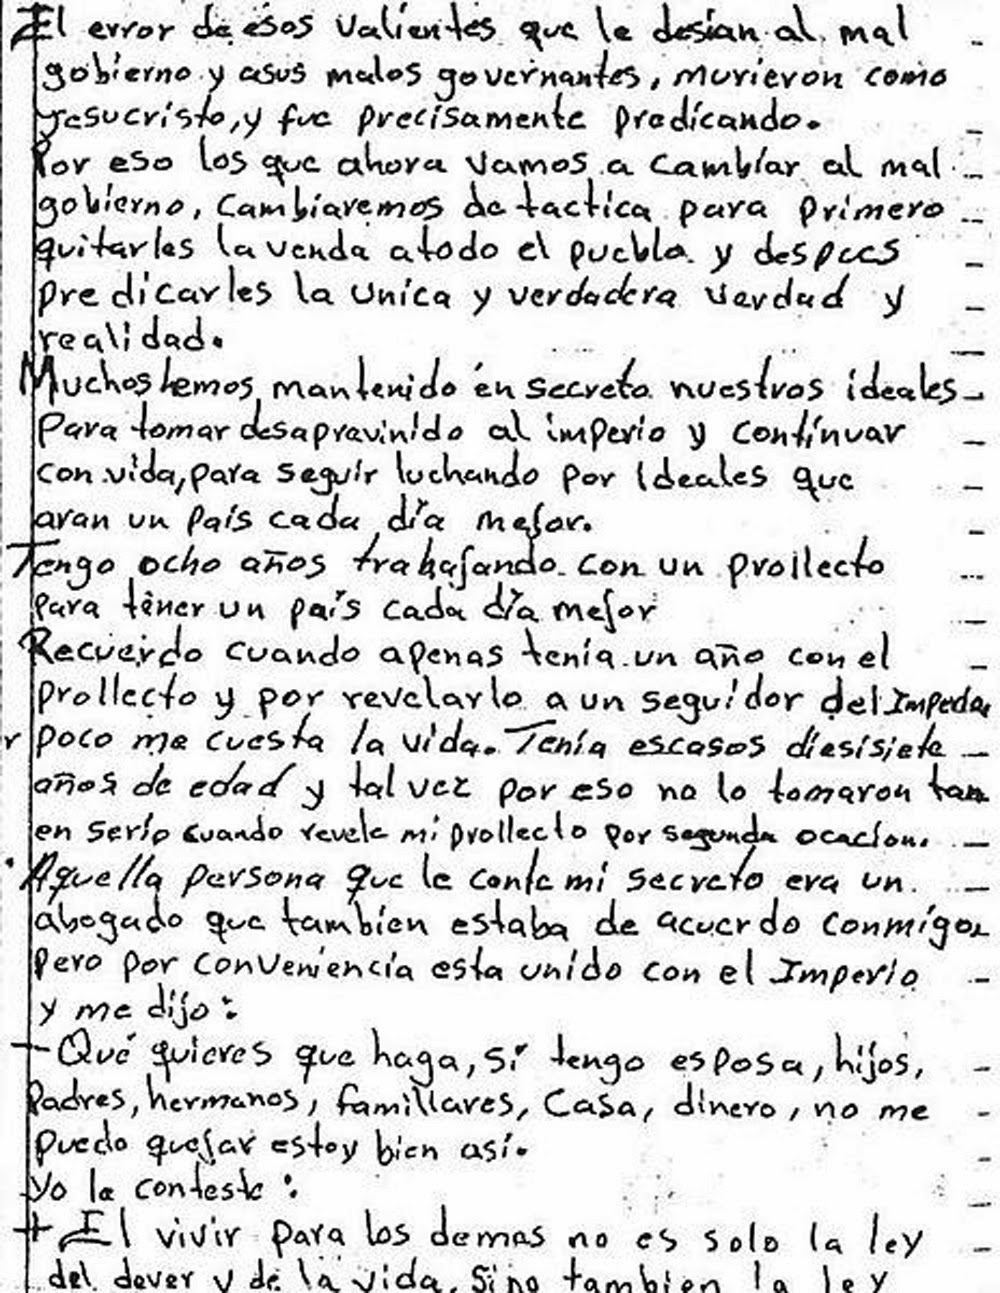 El error de esos valientes que le desían al mal
gobierno y asus malos governantes, murieron como
jesucristo, y fue precisamente predicando.
Por eso los que ahora vamos a cambiar al mal
gobierno, cambiaremos de tactica para primero
quitarles la venda atodo el pueblo y despues
predicarles la unica y verdadera verdad y
realidad.
Muchos hemos mantenido en secreto nuestros ideales
Para tomar desapravinido al imperio y continuar
con vida, para seguir luchando por Ideales que
aran un país cada día mejor.
Tengo ocho años trabajando con un prollecto
para tener un país cada día mejor
Recuerdo cuando apenas tenía un año con el
prollecto y por revelarlo a un seguidor del
r poco me cuesta la vida. Tenía escasos diesisiete
años de edad y tal vez por eso no lo tomaron tan
en serio cuando revele mi prollecto por segunda ocacion.
Aquella persona que le conte mi secreto era un
abogado que tambien estaba de acuerdo conmigo
pero por conveniencia esta unido con el Imperio
y me dijo:
- Qué quieres que haga, si tengo esposa, hijos,
Padres, hermanos, famillares, Casa, dinero, no me
puedo quejar estoy bien así.
yo le conteste:
+ El vivir para los demas no es solo la ley
del dever y de la vida, Sino tambien la ley